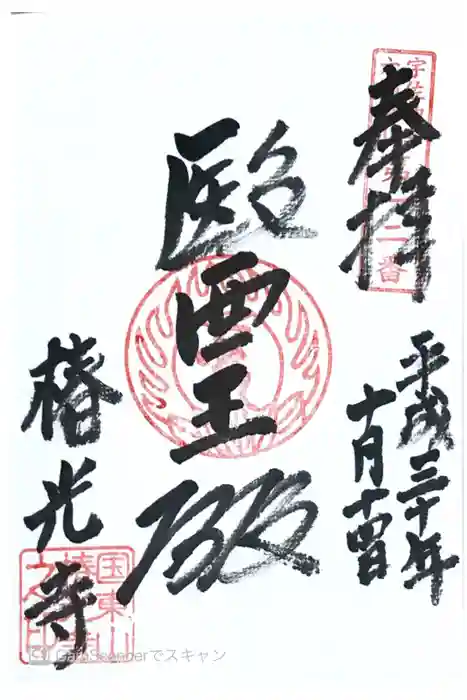 奉拝
平成三十年
十月十四日
醫王殿
椿光寺
二番
国東山
CamScannerでスキャン